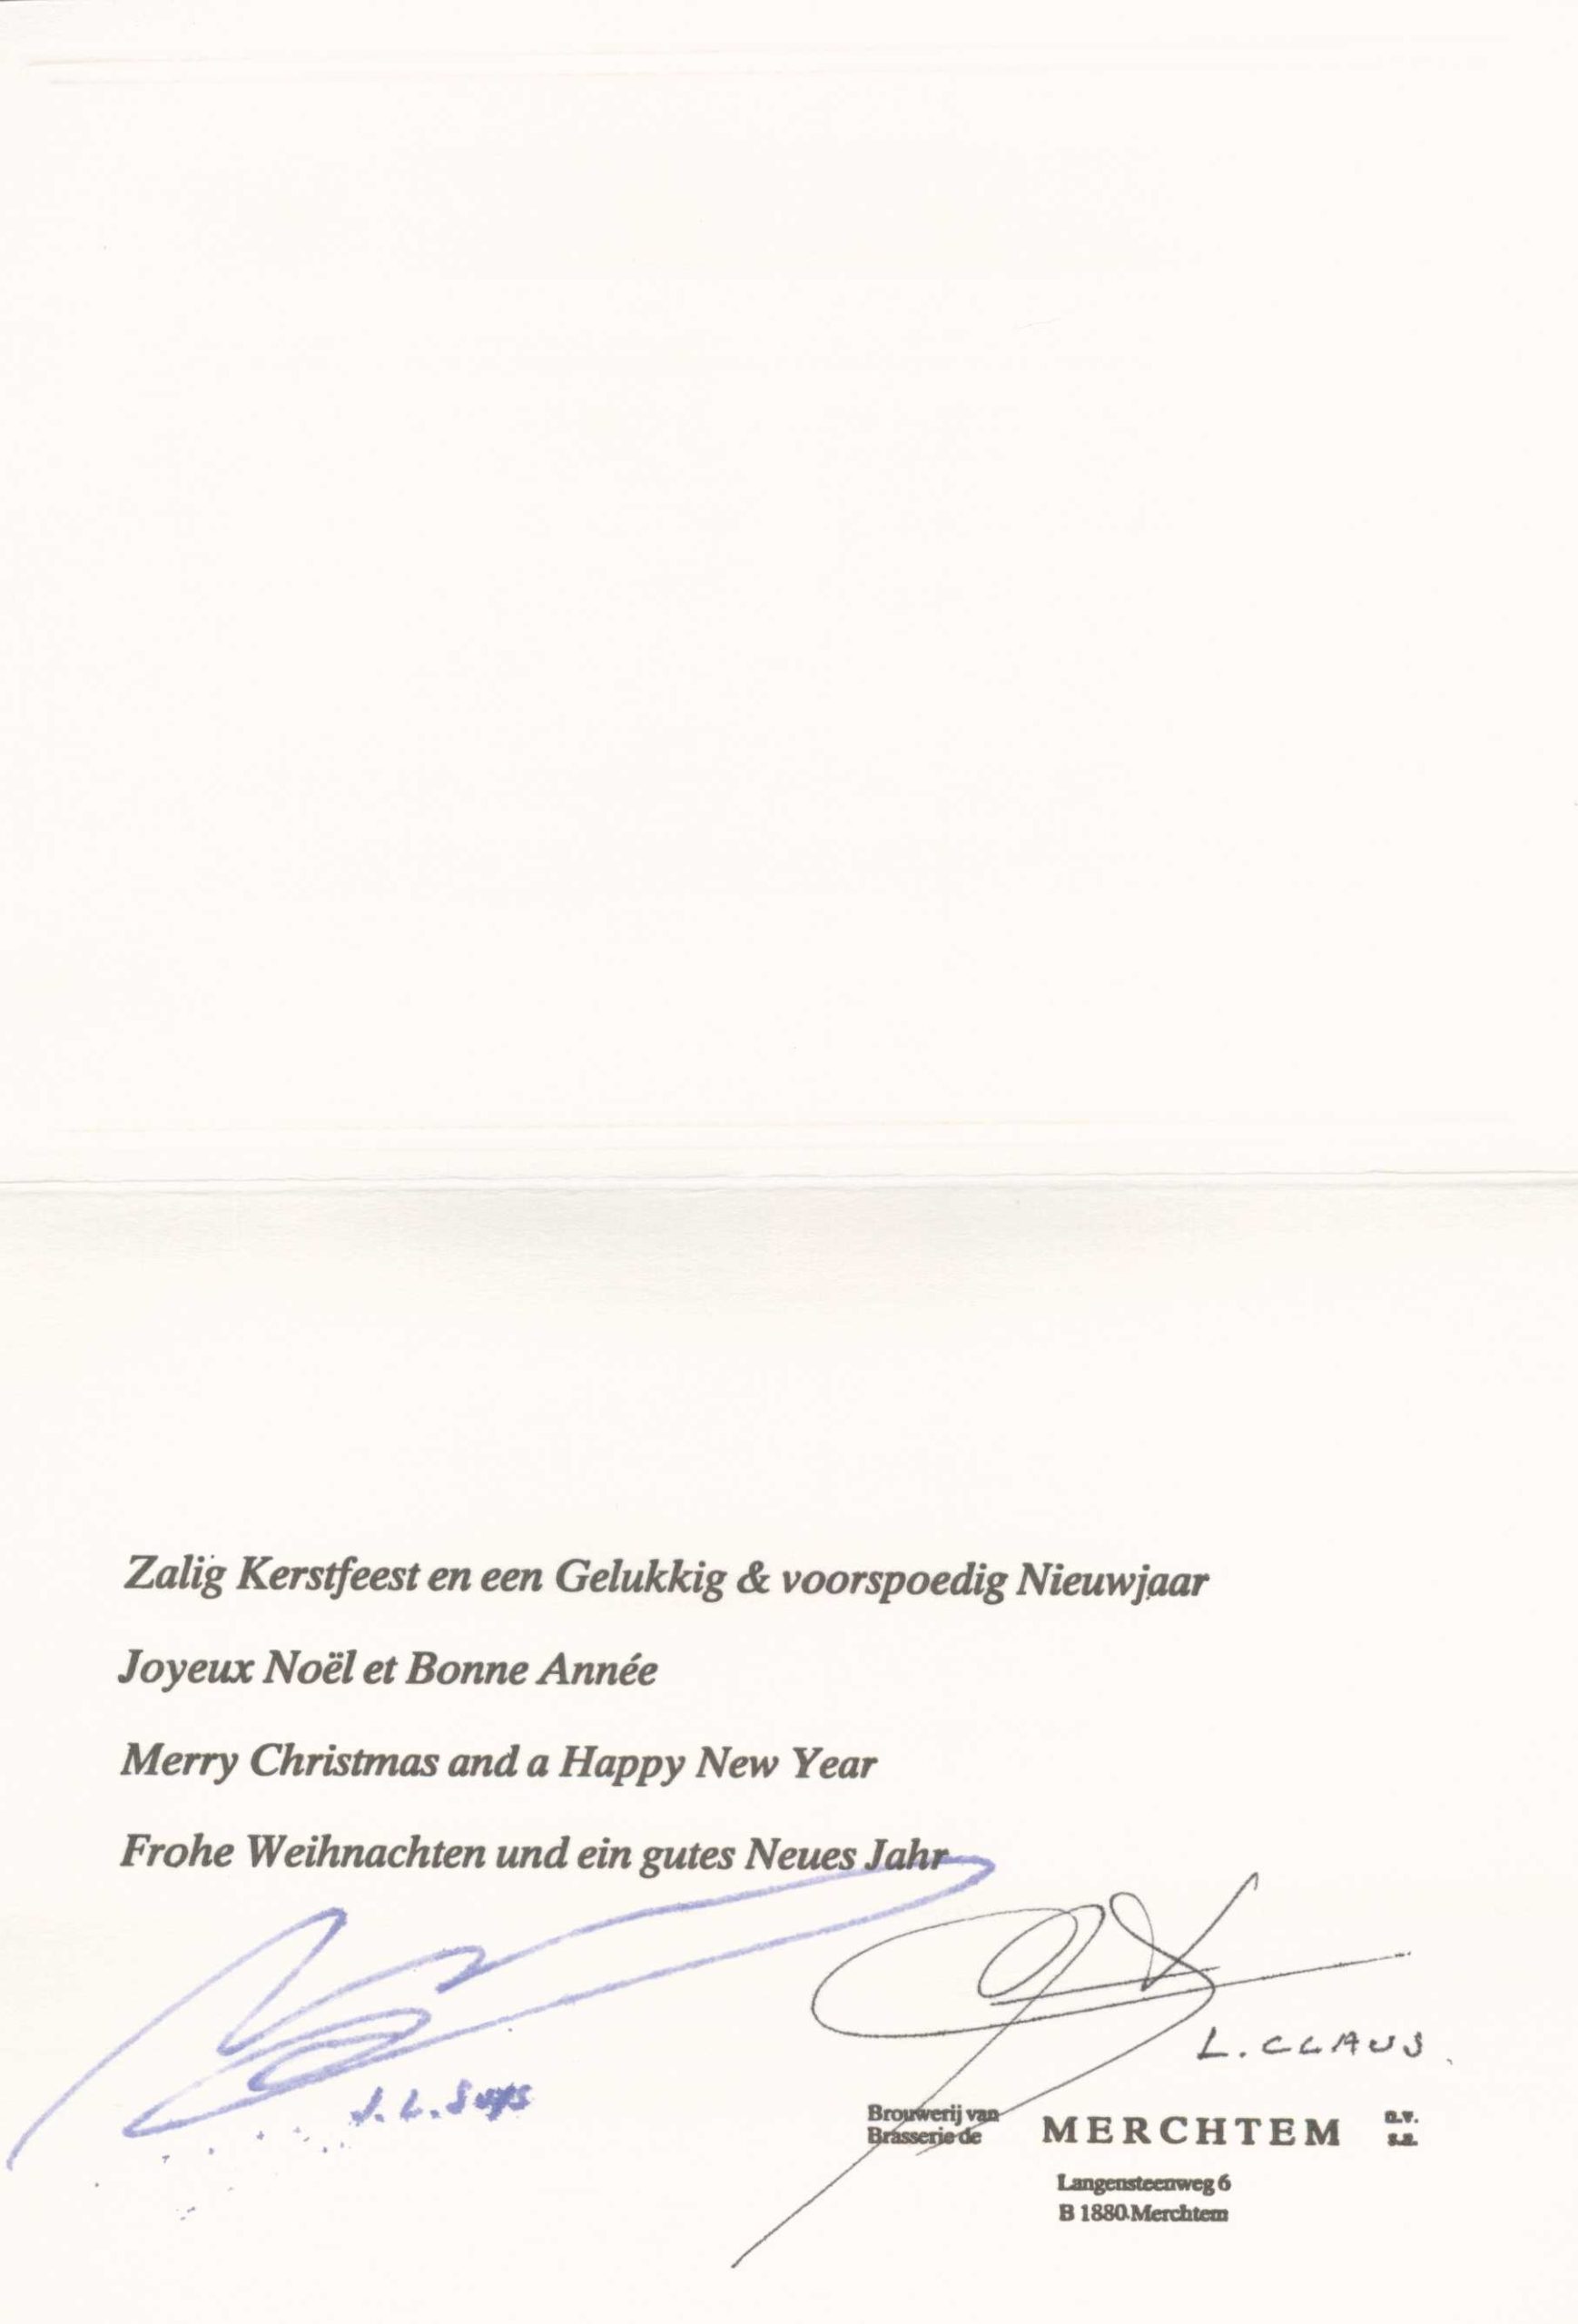 Zalig Kerstfeest en een Gelukkig & voorspoedig Nieuwjaar
Joyeux Noël et Bonne Année
Merry Christmas and a Happy New Year
Frohe Weihnachten und ein gutes Neues Jahr
J. L. Suys
L. CLAUS.
Brouwerij van
Brasserie de
MERCHTEM
n.v.
s.a.
Langensteenweg 6
B 1880 Merchtem